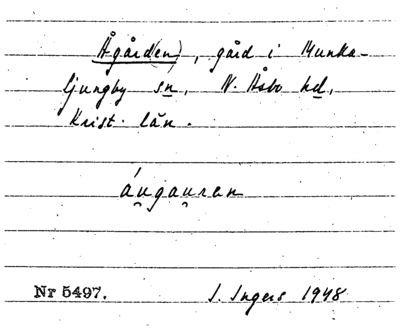 Ågård(en), gård i Munka-
ljungby sn, N. Åsbo hd,
Krist. län.
áu̯gau̯ren
Nr 5497. I. Ingers 1948